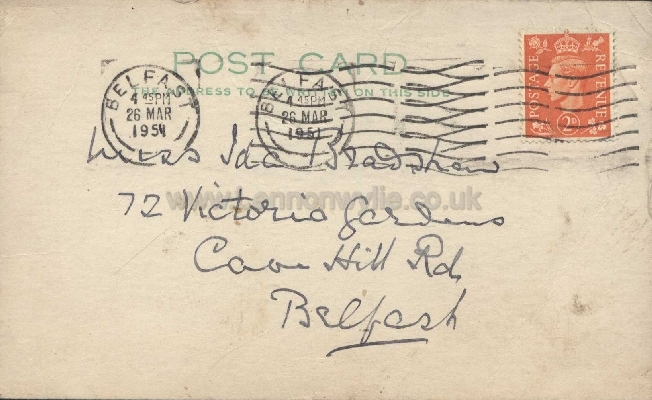 POST CARD
THE ADDRESS TO BE WRITTEN ON THIS SIDE
BELFAST
4 45PM
26 MAR
1951
BELFAST
4 45PM
26 MAR
1951
POSTAGE
REVENUE
2D
Miss Ida Bradshaw
72 Victoria Gardens
Cave Hill Rd
Belfast
www.lennonwylie.co.uk